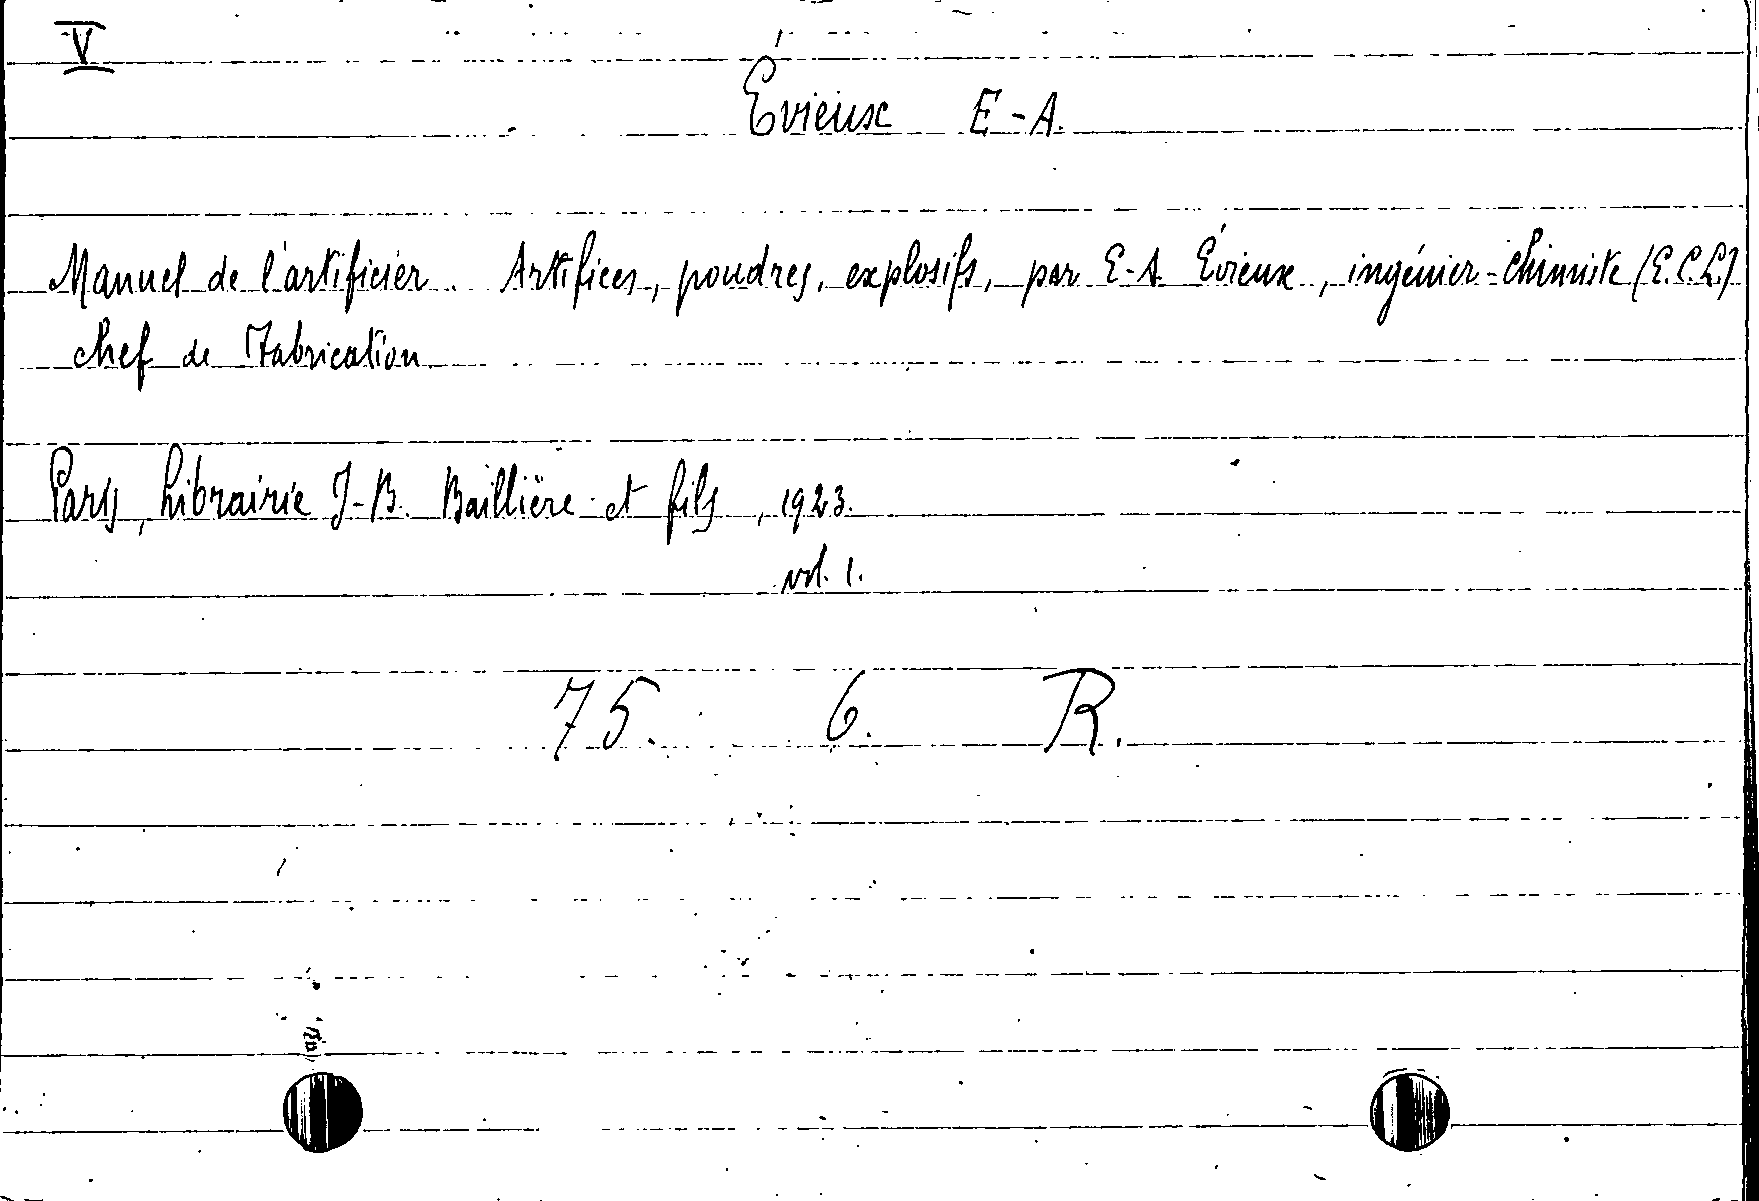 V
Évieux E-A.
Manuel de l'artificier. Artifices, poudres, explosifs, par E-A Évieux, ingénier-chimiste (E.C.L.)
chef de Fabrication
Paris, Librairie J-B. Baillière et fils, 1923.
vol. 1.
75. 6. R.